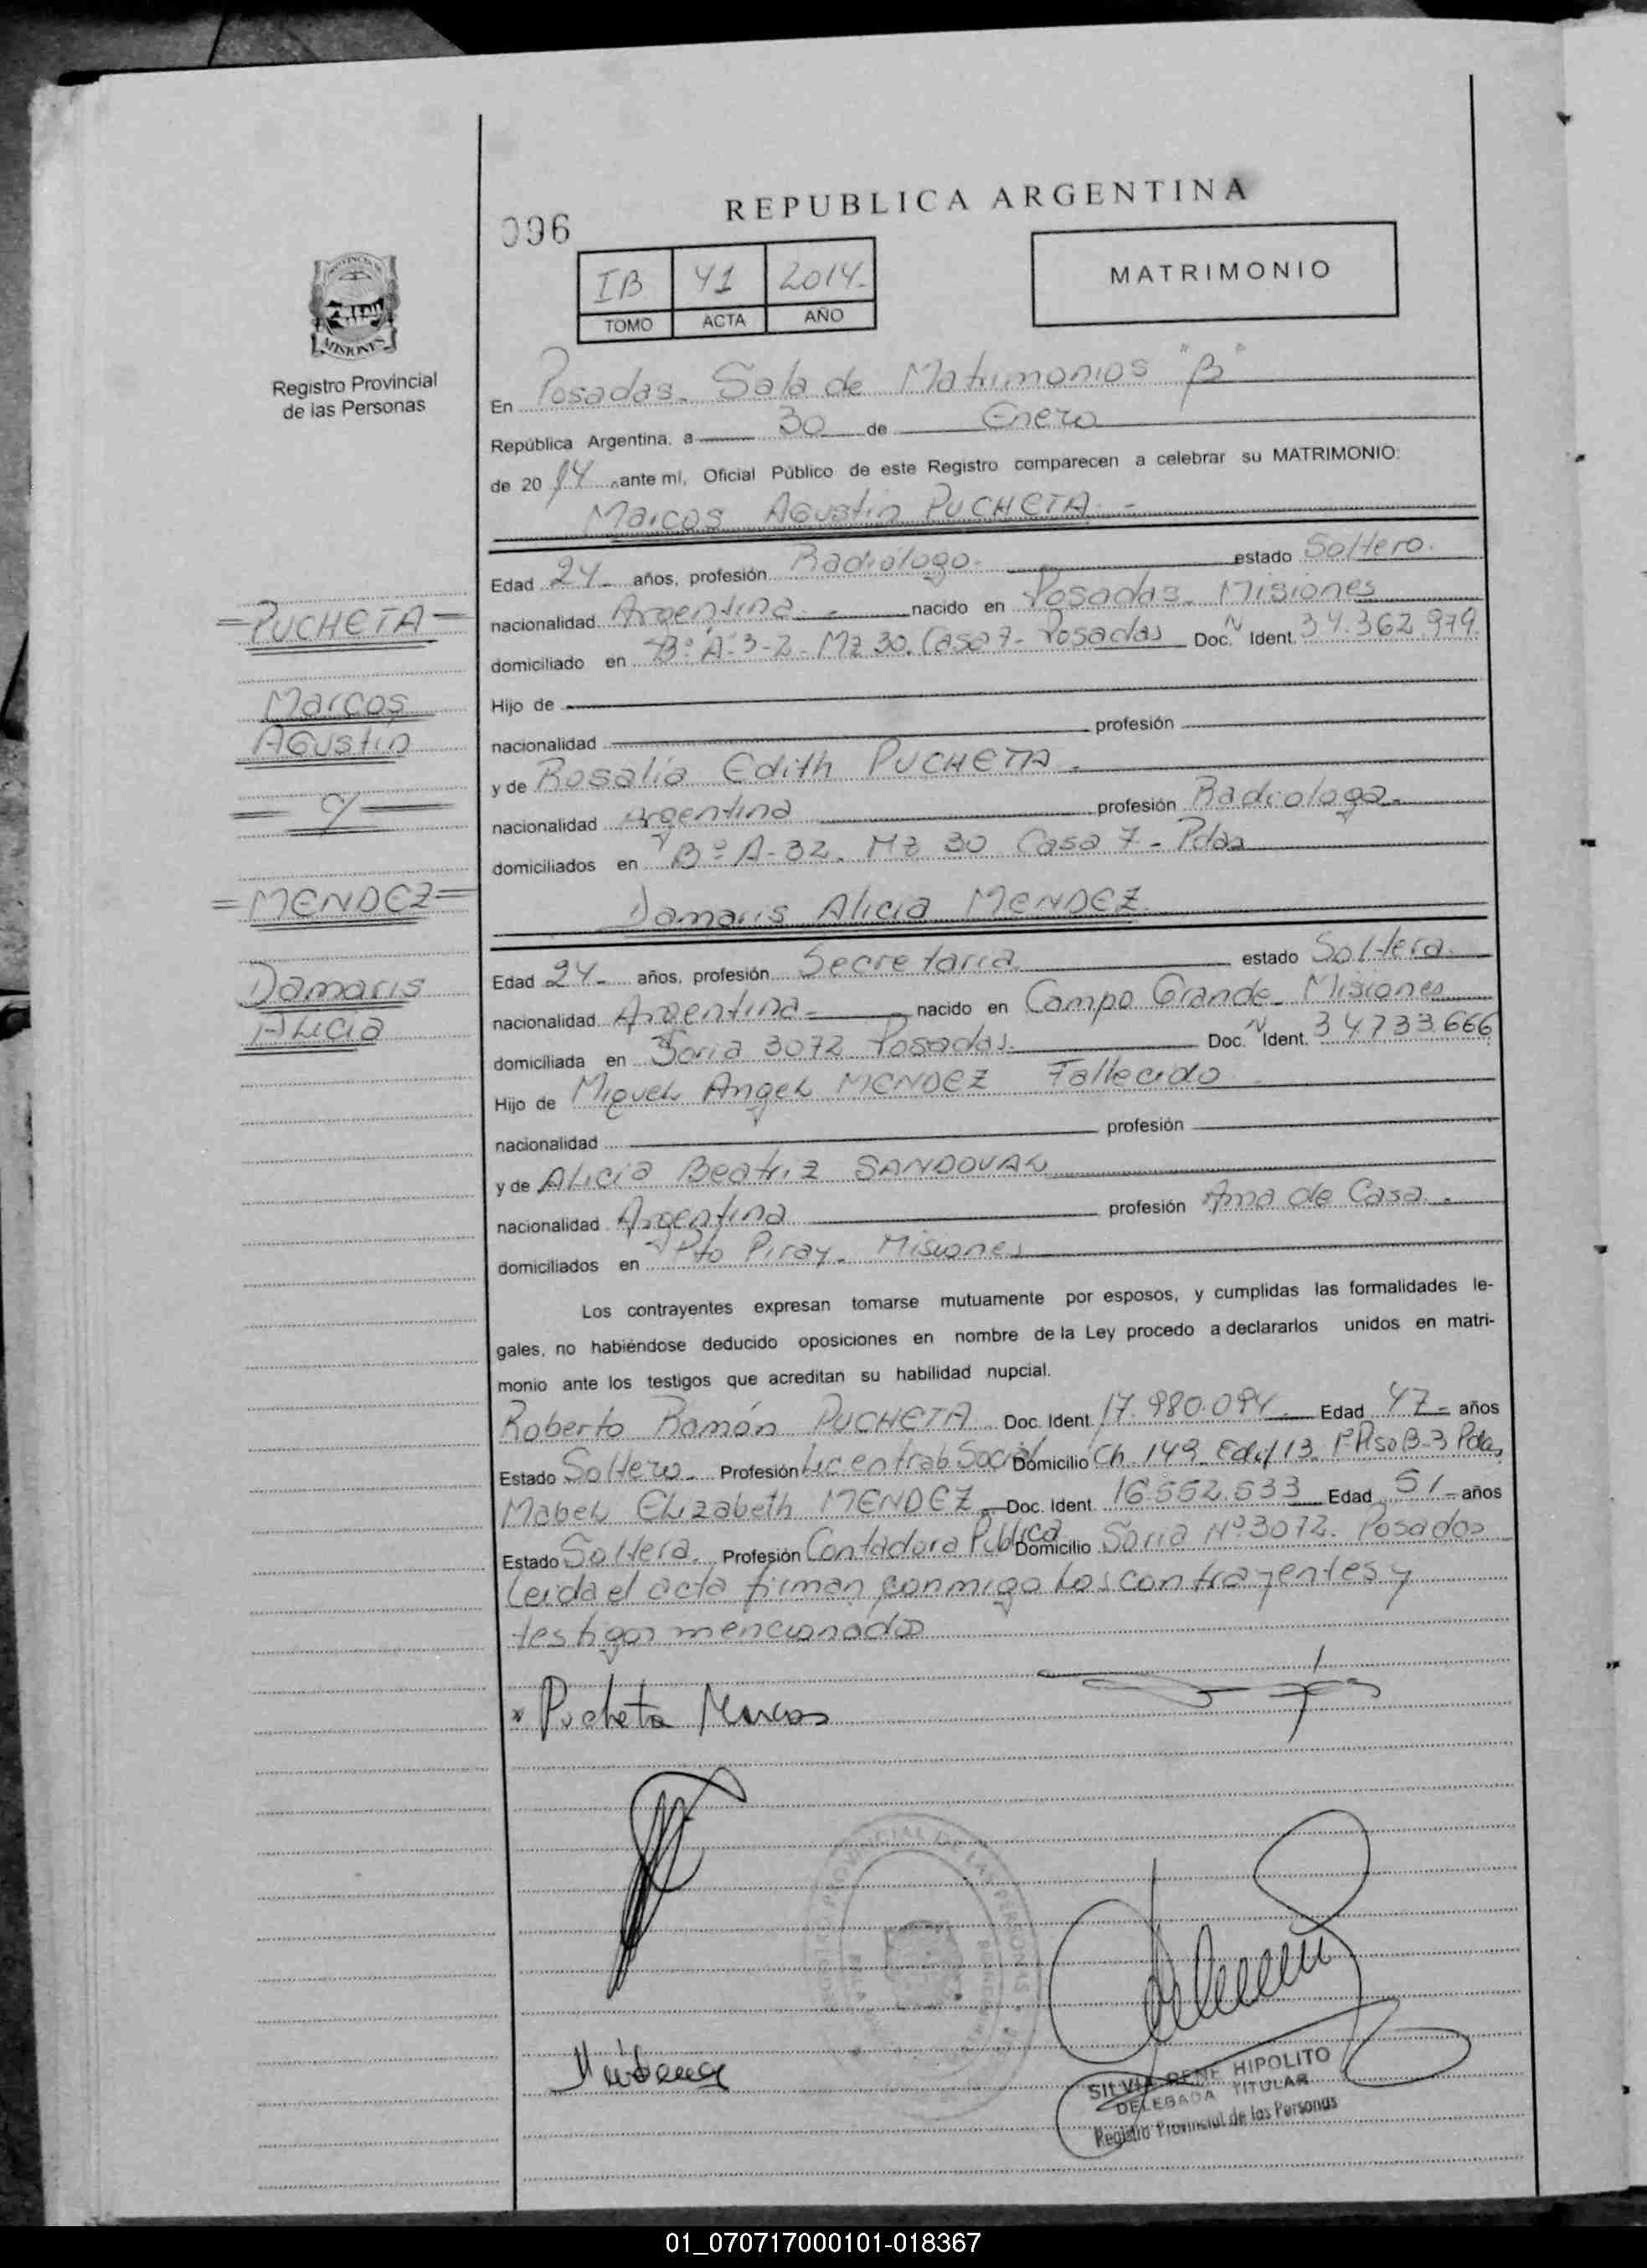 096
REPUBLICA ARGENTINA
IB 41 2014.
TOMO ACTA AÑO
MATRIMONIO
MISIONES
Registro Provincial
de las Personas
En Posadas. Sala de Matrimonios "B"
República Argentina, a 30 de Enero
de 20 14 ante mí, Oficial Público de este Registro comparecen a celebrar su MATRIMONIO:
Marcos Agustin PUCHETA.-
Edad 24- años, profesión Radiólogo. estado Soltero.
nacionalidad Argentina.- nacido en Posadas. Misiones
domiciliado en Bº A-3-2- Mz 30. Casa 7- Posadas Doc. N Ident. 34.362.979.
Hijo de
nacionalidad profesión
y de Rosalía Edith PUCHETA.
nacionalidad Argentina profesión Radiologa.
domiciliados en Bº A-32. Mz 30 Casa 7- Pdas
=PUCHETA=
Marcos
Agustin
= y =
=MENDEZ=
Damaris
Alicia
Damaris Alicia MENDEZ
Edad 24- años, profesión Secretaria. estado Soltera.
nacionalidad Argentina- nacido en Campo Grande- Misiones
domiciliada en Soria 3072 Posadas. Doc. N Ident. 34733.666
Hijo de Miguel Angel MENDEZ Fallecido
nacionalidad profesión
y de Alicia Beatriz SANDOVAL
nacionalidad Argentina profesión Ama de Casa.-
domiciliados en Pto Piray- Misiones
Los contrayentes expresan tomarse mutuamente por esposos, y cumplidas las formalidades le-
gales, no habiéndose deducido oposiciones en nombre de la Ley procedo a declararlos unidos en matri-
monio ante los testigos que acreditan su habilidad nupcial.
Roberto Ramón PUCHETA Doc. Ident. 17.980.094. Edad 47- años
Estado Soltero. Profesión Lic en trab Social Domicilio Ch 149 Edif 13 1º Piso B-3 Pdas
Mabel Elizabeth MENDEZ Doc. Ident. 16.552.533 Edad 51- años
Estado Soltera. Profesión Contadora Pública Domicilio Soria Nº 3072. Posadas
Leida el acta firman conmigo los contrayentes y
testigos mencionados
x Pucheta Marcos
SILVIA RENE HIPOLITO
DELEGADA TITULAR
Registro Provincial de las Personas
01_070717000101-018367